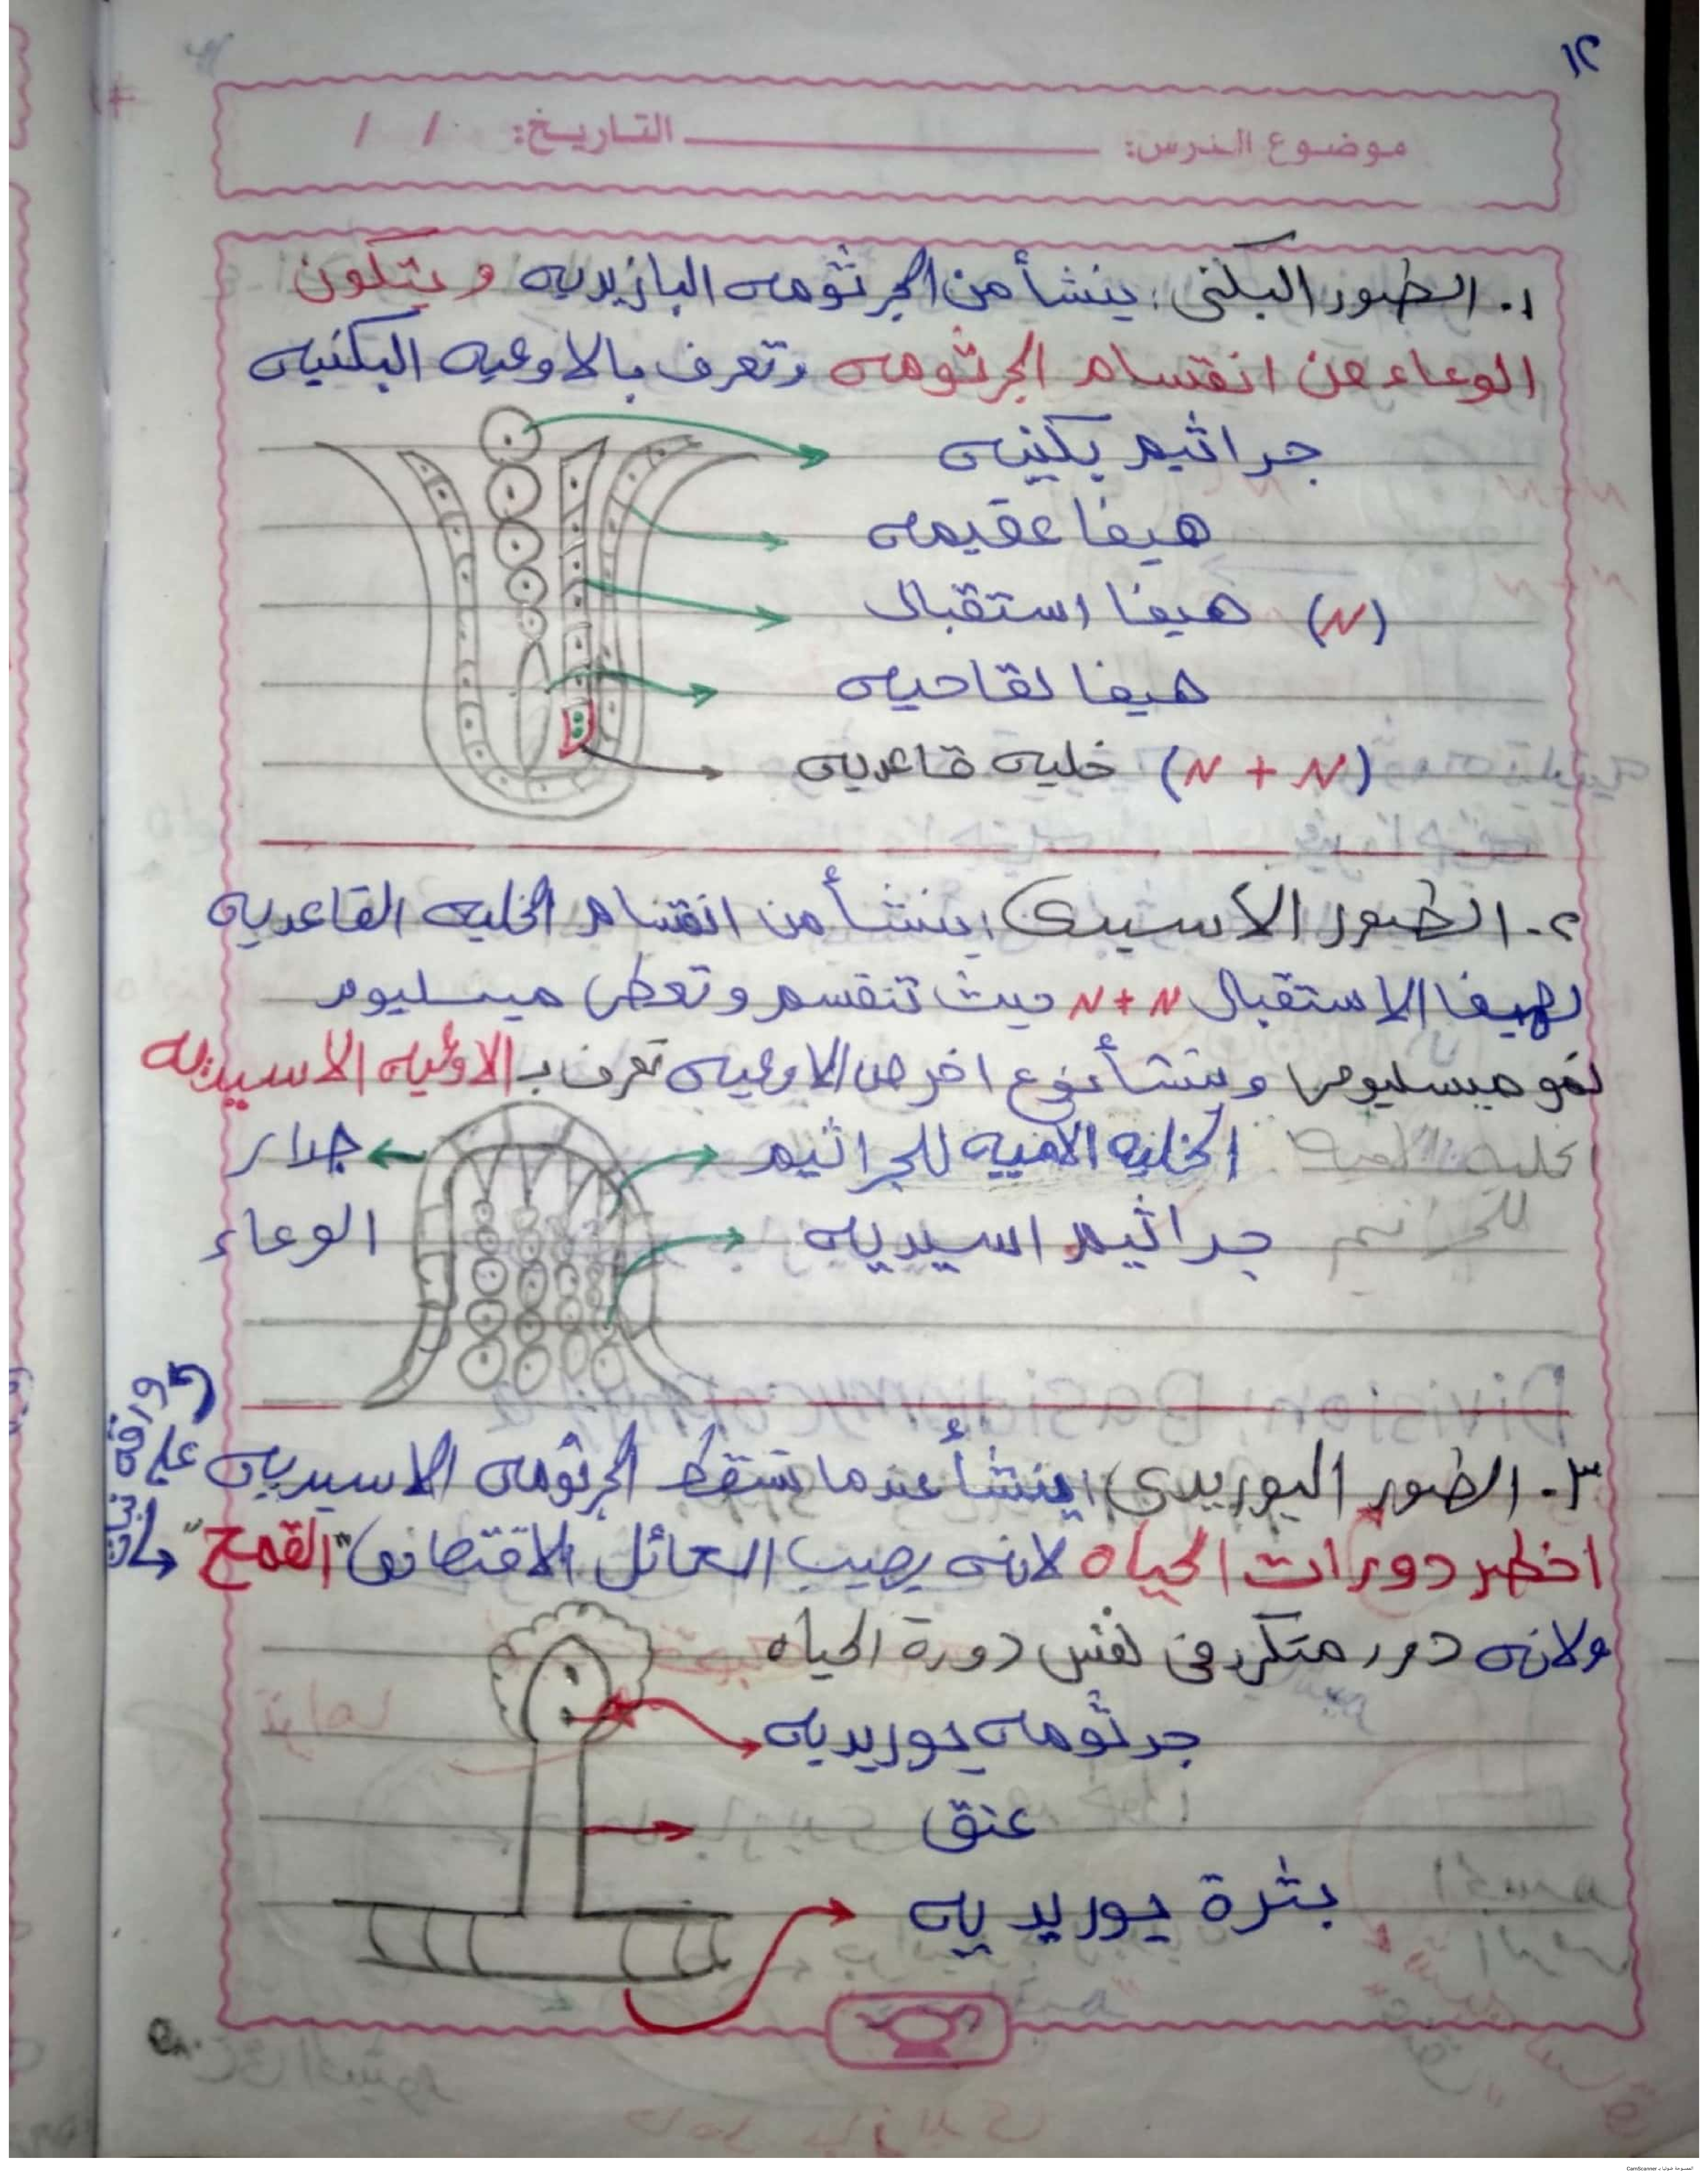 ١٢
موضوع الدرس: التاريخ: / /
١. الطور البكنى: ينشأ من الجرثومه البازيديه ويتكون
الوعاء من انقسام الجرثومه وتعرف بالاوعيه البكنيه
جراثيم بكنيه
هيفا عقيمه
هيفا استقبال (N)
هيفا لقاحيه
خليه قاعديه (N + N)
٢. الطور الاسيدى: ينشأ من انقسام الخليه القاعديه
لهيفا الاستقبال N+N حيث تنقسم وتعطى ميسليوم
نمو ميسليومى وينشأ نوع اخر من الاوعيه تعرف بـ الاوعيه الاسيديه
الخليه الاميه للجراثيم
جدار
الوعاء
جراثيم اسيديه
٣. الطور اليوريدى: ينشأ عندما تسقط الجرثومه الاسيديه على
ورقه نبات
اخطر دورات الحياه لانه يصيب العائل الاقتصادى "القمح"
ولانه دور متكرر فى نفس دورة الحياه
جرثومه يوريديه
عنق
بثرة يوريديه
CamScanner الممسوحة ضوئيا بـ